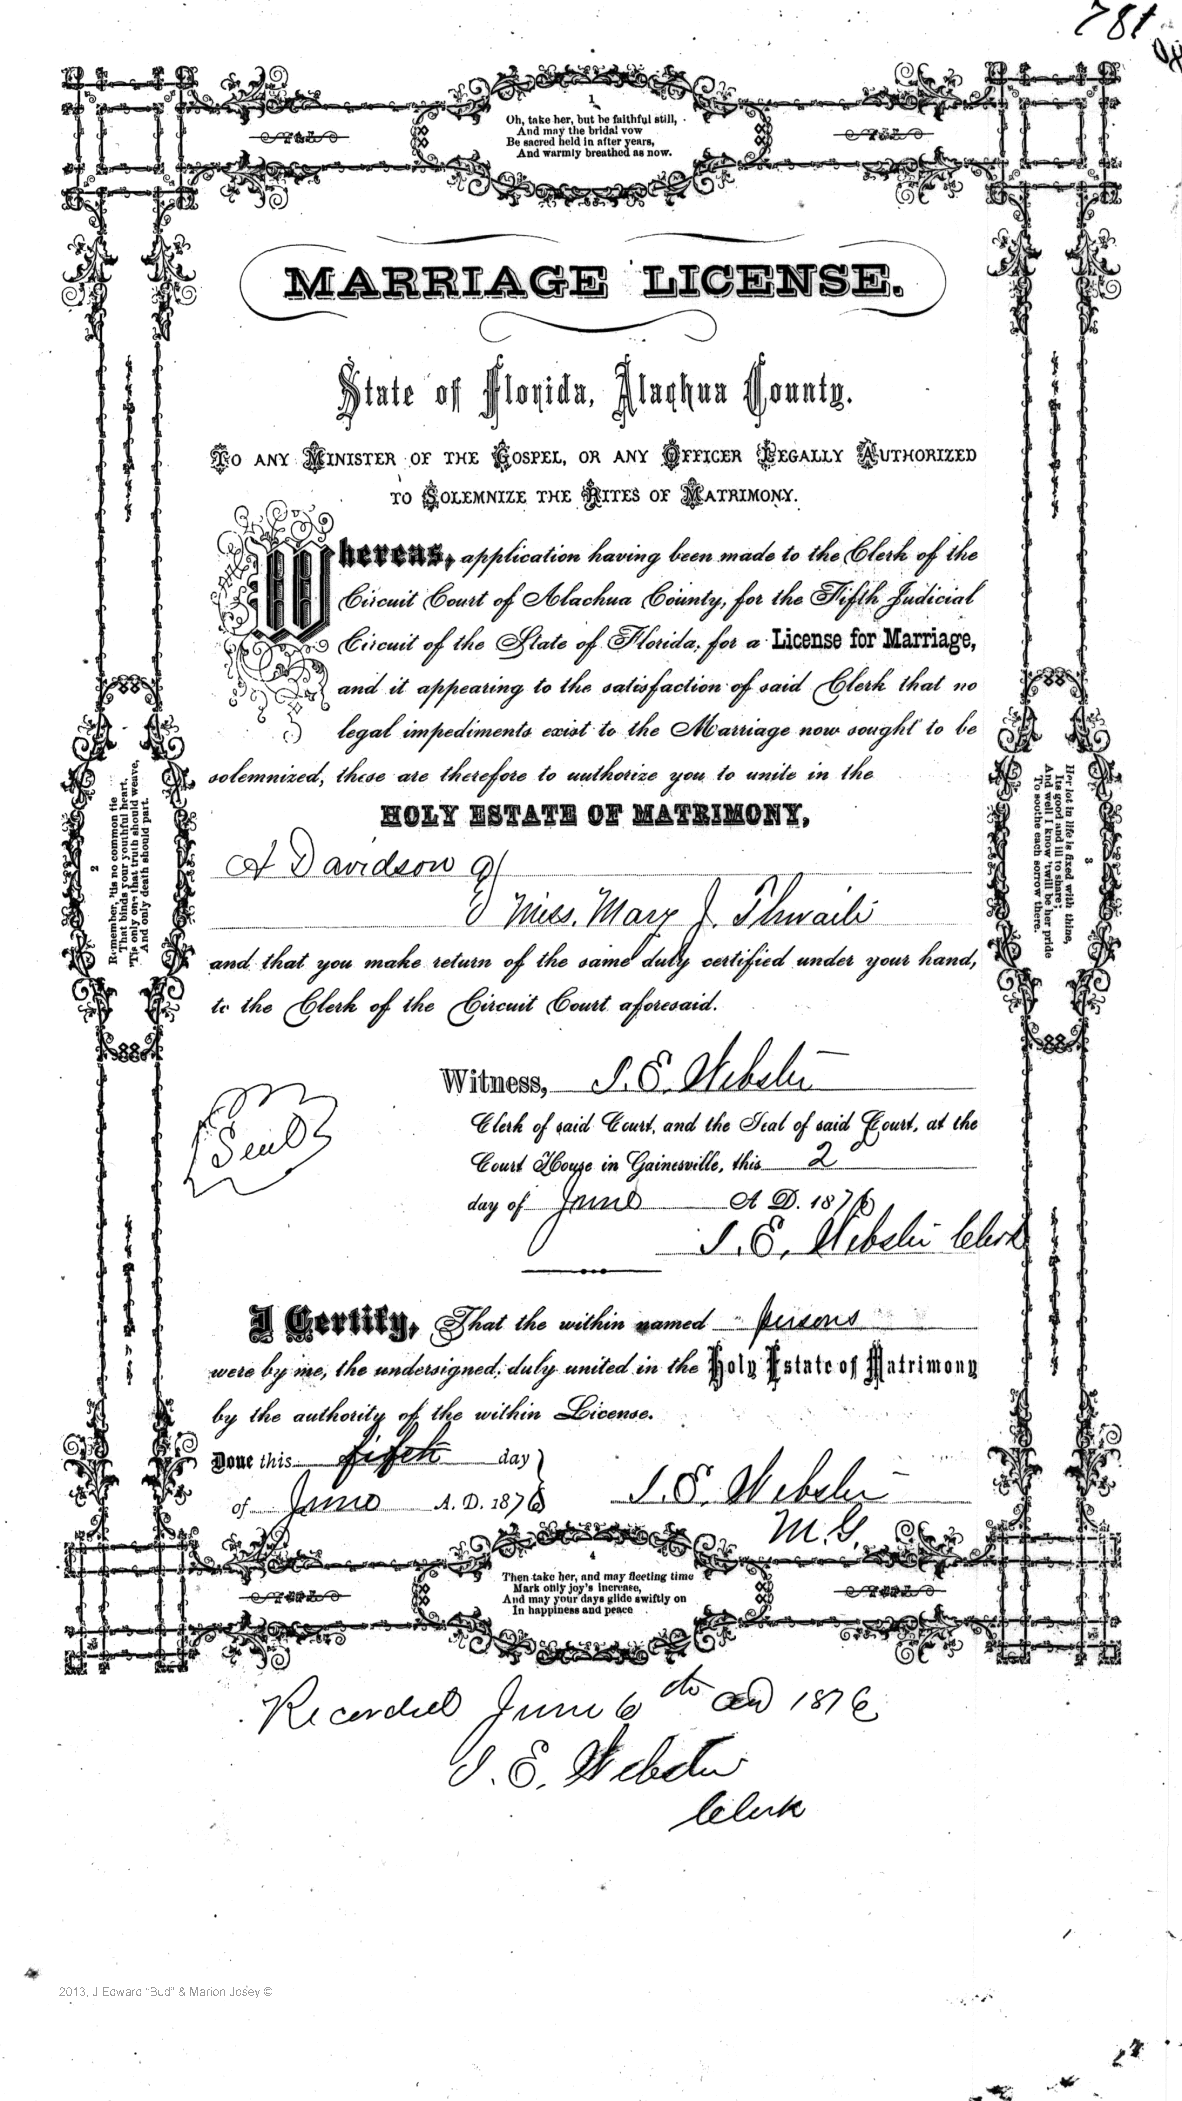 781
Oh, take her, but be faithful still,
And may the bridal vow
Be sacred held in after years,
And warmly breathed as now.
MARRIAGE LICENSE.
State of Florida, Alachua County.
TO ANY MINISTER OF THE GOSPEL, OR ANY OFFICER LEGALLY AUTHORIZED
TO SOLEMNIZE THE RITES OF MATRIMONY.
Whereas, application having been made to the Clerk of the
Circuit Court of Alachua County, for the Fifth Judicial
Circuit of the State of Florida, for a License for Marriage,
and it appearing to the satisfaction of said Clerk that no
legal impediments exist to the Marriage now sought to be
solemnized, these are therefore to authorize you to unite in the
HOLY ESTATE OF MATRIMONY,
A Davidson &
Miss. Mary J. Thwaite
and that you make return of the same duly certified under your hand,
to the Clerk of the Circuit Court aforesaid.
2
Remember, 'tis no common tie
That binds your youthful heart,
'Tis only one that truth should weave,
And only death should part.
3
Her lot in life is fixed with thine,
Its good and ill to share;
And well I know 'twill be her pride
To soothe each sorrow there.
Witness, I. E. Webster
Clerk of said Court, and the Seal of said Court, at the
Court House in Gainesville, this 2
day of June A D. 1876
I. E. Webster Clerk
Seal
I Certify, That the within named persons
were by me, the undersigned, duly united in the Holy Estate of Matrimony
by the authority of the within License.
Done this fifth day
of June A. D. 1876
I. E. Webster
M. G.
4
Then take her, and may fleeting time
Mark only joy's increase,
And may your days glide swiftly on
In happiness and peace
Recorded June 6th AD 1876
I. E. Webster
Clerk
2013, J Edward "Bud" & Marion Josey ©